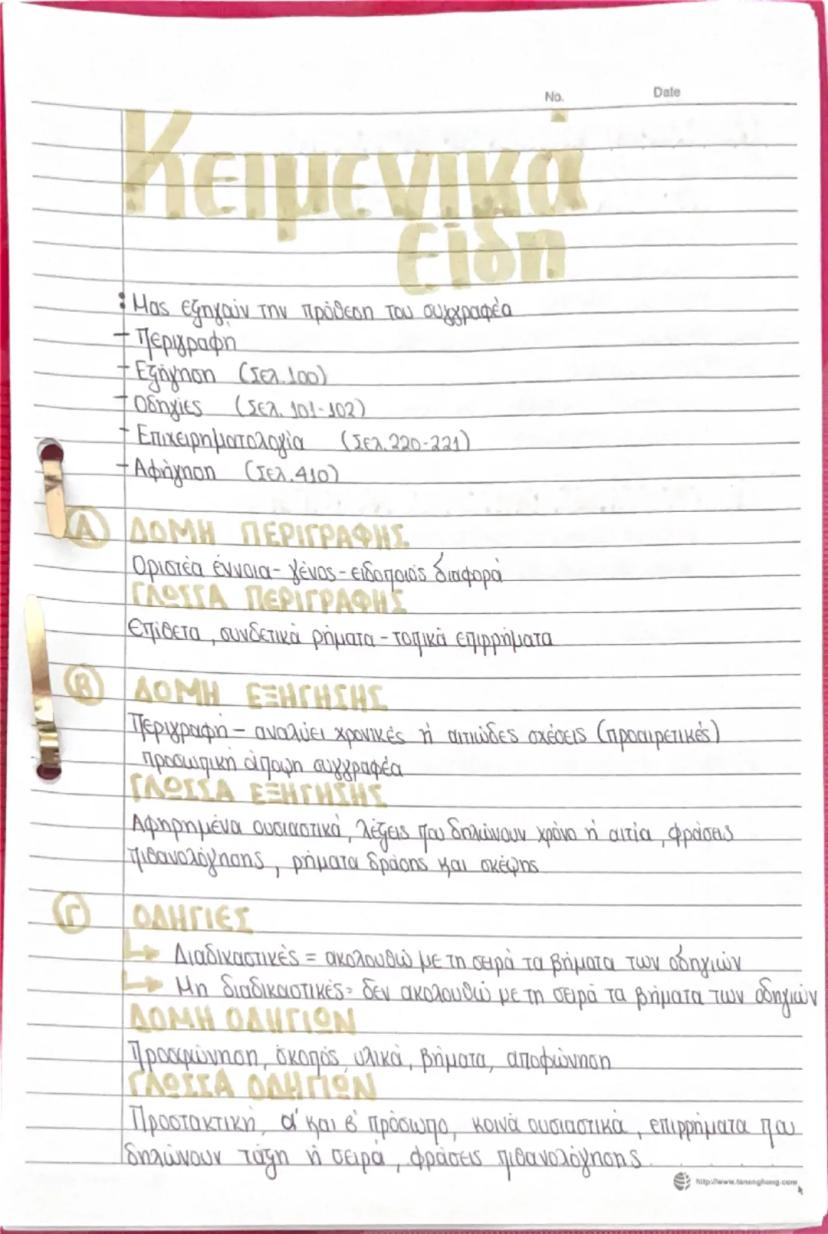 No. Date
Κειμενικά
είδη
: Μας εξηγούν την πρόθεση του συγγραφέα
- Περιγραφή
- Εξήγηση (Σελ.100)
- Οδηγίες (Σελ. 101-102)
- Επιχειρηματολογία (Σελ.220-221)
- Αφήγηση (Σελ.410)
Α ΔΟΜΗ ΠΕΡΙΓΡΑΦΗΣ
Οριστέα έννοια - γένος - ειδοποιός διαφορά
ΓΛΩΣΣΑ ΠΕΡΙΓΡΑΦΗΣ
Επίθετα, συνδετικά ρήματα - τοπικά επιρρήματα
Β ΔΟΜΗ ΕΞΗΓΗΣΗΣ
Περιγραφή - αναλύει χρονικές ή αιτιώδες σχέσεις (προαιρετικές)
προσωπική άποψη συγγραφέα
ΓΛΩΣΣΑ ΕΞΗΓΗΣΗΣ
Αφηρημένα ουσιαστικά, λέξεις που δηλώνουν χρόνο ή αιτία, φράσεις
πιθανολόγησης, ρήματα δράσης και σκέψης
Γ ΟΔΗΓΙΕΣ
↳ Διαδικαστικές = ακολουθώ με τη σειρά τα βήματα των οδηγιών
↳ Μη διαδικαστικές = δεν ακολουθώ με τη σειρά τα βήματα των οδηγιών
ΔΟΜΗ ΟΔΗΓΙΩΝ
Προσφώνηση, σκοπός, υλικά, βήματα, αποφώνηση
ΓΛΩΣΣΑ ΟΔΗΓΙΩΝ
Προστακτική, α' και β' πρόσωπο, κοινά ουσιαστικά, επιρρήματα που
δηλώνουν τάξη ή σειρά, φράσεις πιθανολόγησης